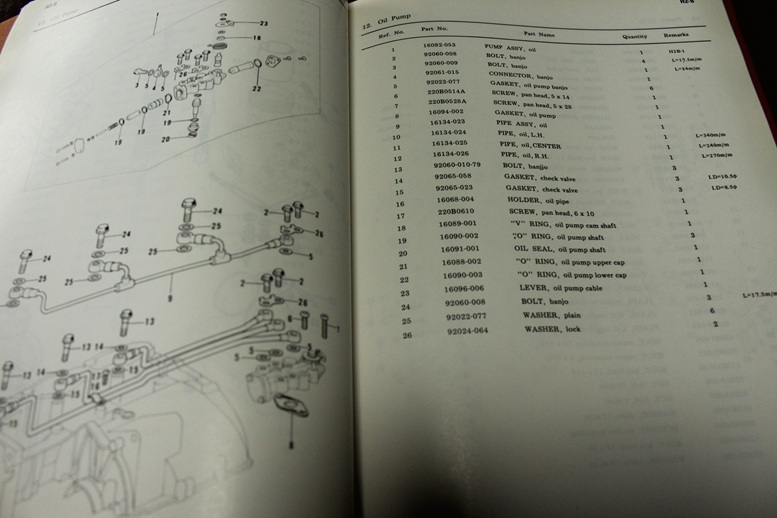 12. Oil Pump
H2-S
Ref. No. Part No. Part Name Quantity Remarks
1 16082-053 PUMP ASSY, oil 1 H2B-1
2 92060-008 BOLT, banjo 4 L=17.5m/m
3 92060-009 BOLT, banjo 1 L=24m/m
4 92061-015 CONNECTOR, banjo 1
5 92022-077 GASKET, oil pump banjo 6
6 220B0514A SCREW, pan head, 5 x 14 1
7 220B0528A SCREW, pan head, 5 x 28 1
8 16094-002 GASKET, oil pump 1
9 16134-023 PIPE ASSY, oil 1
10 16134-024 PIPE, oil, L.H. 1 L=340m/m
11 16134-025 PIPE, oil, CENTER 1 L=240m/m
12 16134-026 PIPE, oil, R.H. 1 L=270m/m
13 92060-010-79 BOLT, banjju 3
14 92065-058 GASKET, check valve 3 I.D=10.5φ
15 92065-023 GASKET, check valve 3 I.D=8.5φ
16 16068-004 HOLDER, oil pipe 1
17 220B0610 SCREW, pan head, 6 x 10 1
18 16089-001 "V" RING, oil pump cam shaft 1
19 16090-002 "O" RING, oil pump shaft 3
20 16091-001 OIL SEAL, oil pump shaft 1
21 16088-002 "O" RING, oil pump upper cap 1
22 16090-003 "O" RING, oil pump lower cap 1
23 16096-006 LEVER, oil pump cable 1
24 92060-008 BOLT, banjo 3 L=17.5m/m
25 92022-077 WASHER, plain 6
26 92024-064 WASHER, lock 2
12. Oil Pump
1
23
18
26
3 5 4 5
22
21
19
19
20
24
2 2
25
24
26
25
5
24
25
25
9
2 2
26
13
6
13 14
5
13 14
15
5 5
17
16
15
15
8